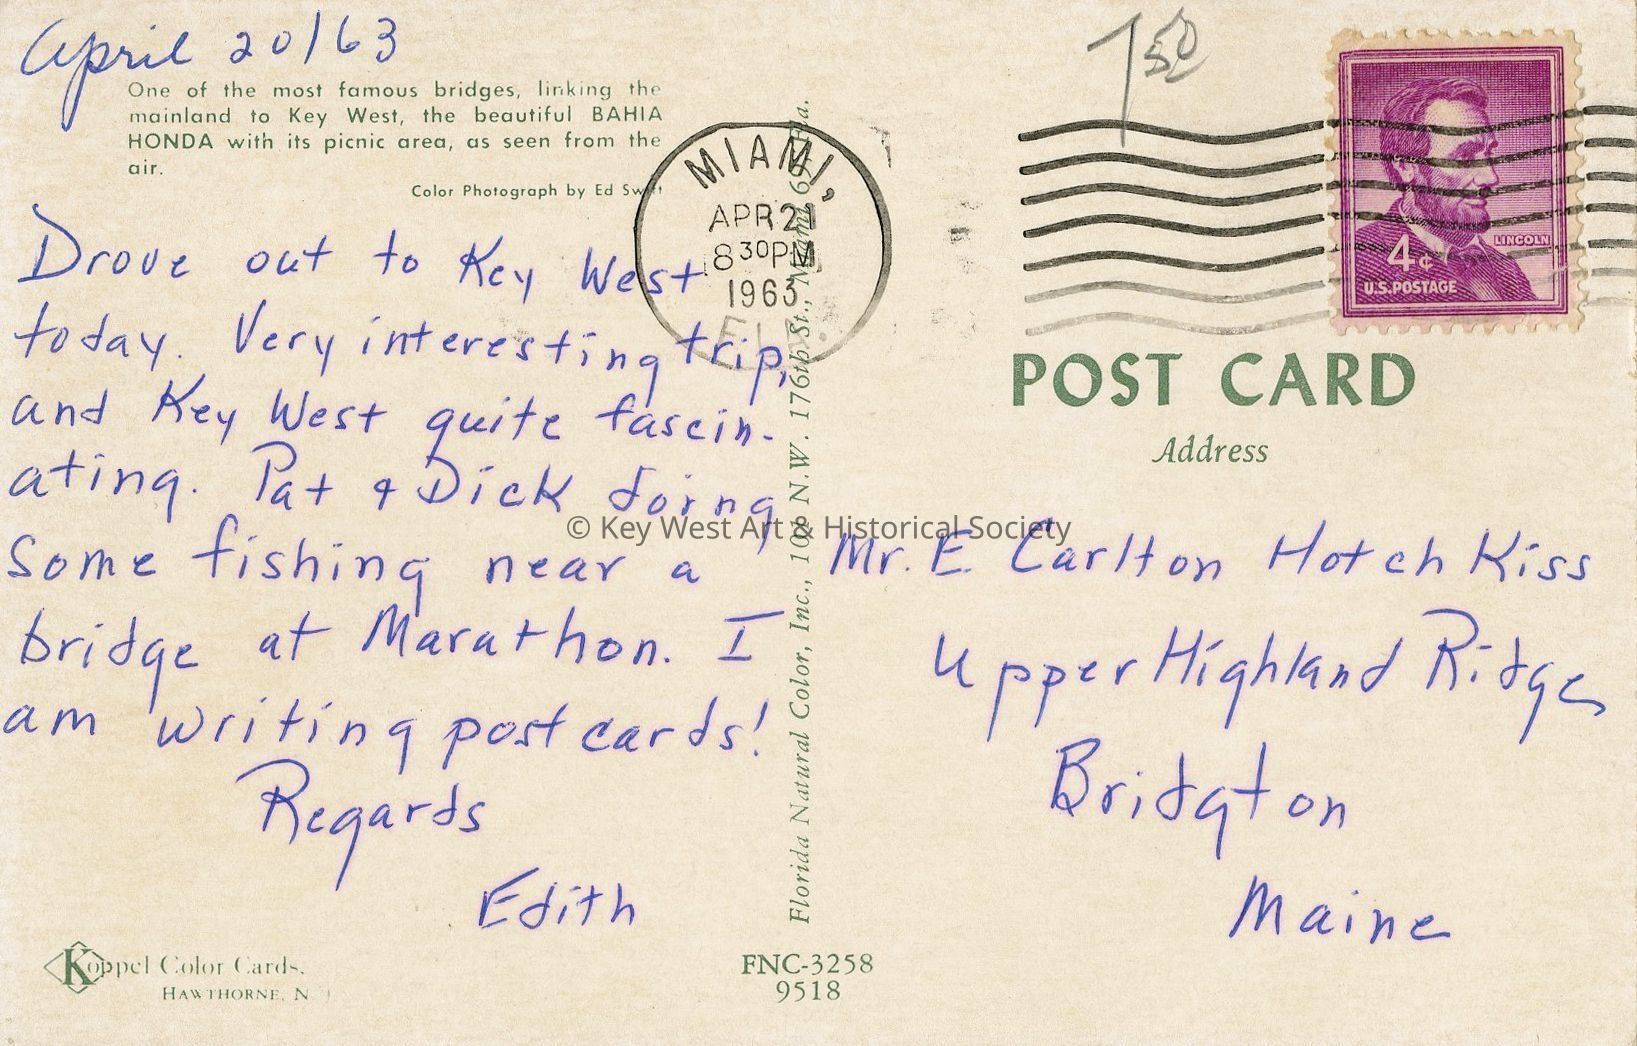 April 20/63
One of the most famous bridges, linking the
mainland to Key West, the beautiful BAHIA
HONDA with its picnic area, as seen from the
air.
Color Photograph by Ed Swift
Drove out to Key West
today. Very interesting trip,
and Key West quite fascin-
ating. Pat & Dick doing
some fishing near a
bridge at Marathon. I
am writing postcards!
Regards
Edith
Koppel Color Cards,
HAWTHORNE, N
Florida Natural Color, Inc., 108 N.W. 176th St., Miami 69, Fla.
FNC-3258
9518
MIAMI,
APR 21
8 30 PM
1963
FLA.
1 50
LINCOLN
4¢
U.S. POSTAGE
POST CARD
Address
Mr. E. Carlton Hotchkiss
Upper Highland Ridge,
Bridgton
Maine
© Key West Art & Historical Society